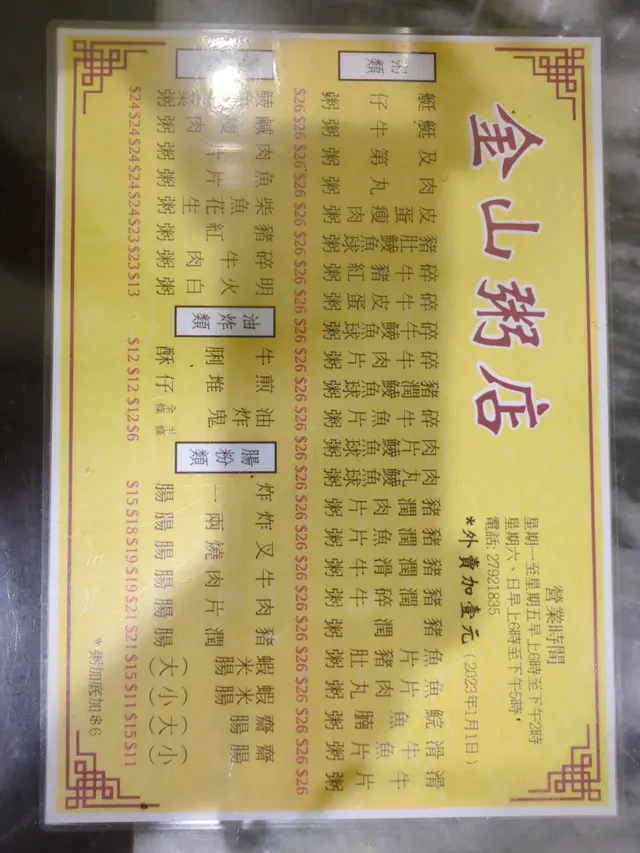 金山粥店
營業時間
星期一至星期五早上6時至下午2時
星期六、日早上6時至下午5時,
電話:27921835
*外賣加壹元(2023年1月1日)
粥類
艇仔粥 $26
艇牛粥 $26
及第粥 $26
肉丸粥 $26
皮蛋瘦肉粥 $26
豬肚鯪魚球粥 $26
碎牛豬紅粥 $26
碎牛皮蛋粥 $26
碎牛鯪魚球粥 $26
碎牛肉片粥 $26
豬潤鯪魚球粥 $26
碎牛魚片粥 $26
肉片鯪魚球粥 $26
肉丸鯪魚球粥 $26
豬潤肉片粥 $26
豬潤魚片粥 $26
豬潤滑牛粥 $26
豬潤碎牛粥 $26
魚片豬肚粥 $26
魚片肉丸粥 $26
鯇魚腩粥 $26
滑牛魚片粥 $26
滑牛片粥 $26
鹹瘦肉粥 $24
肉片粥 $24
魚片粥 $24
柴魚花生粥 $24
豬紅粥 $23
碎牛肉粥 $23
明火白粥 $13
油炸類
牛脷酥 $12
煎堆仔 $12
油炸鬼 全條 $12 半條 $6
腸粉類
炸兩腸 $18
叉燒腸 $19
牛肉腸 $19
肉片腸 $21
豬潤腸 $21
蝦米腸(大) $15
蝦米腸(小) $11
齋腸(大) $15
齋腸(小) $11
*粥加底加$6